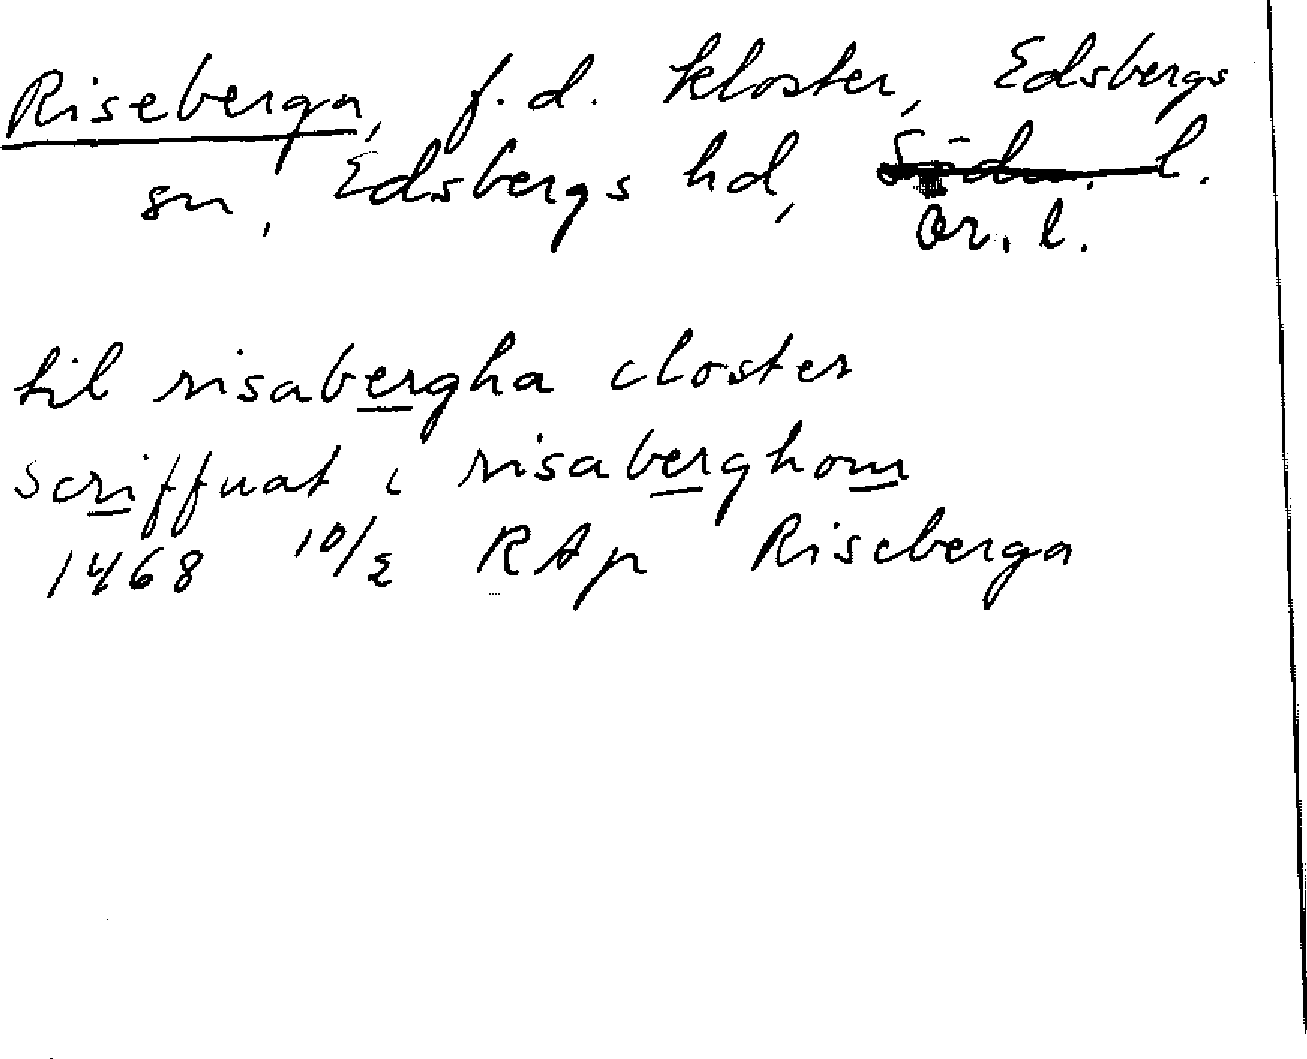 Riseberga, f.d. kloster, Edsbergs
sn, Edsbergs hd, Södm. l.
Ör. l.
til risabergha closter
scriffuat i risaberghom
1468 10/2 RAp Riseberga